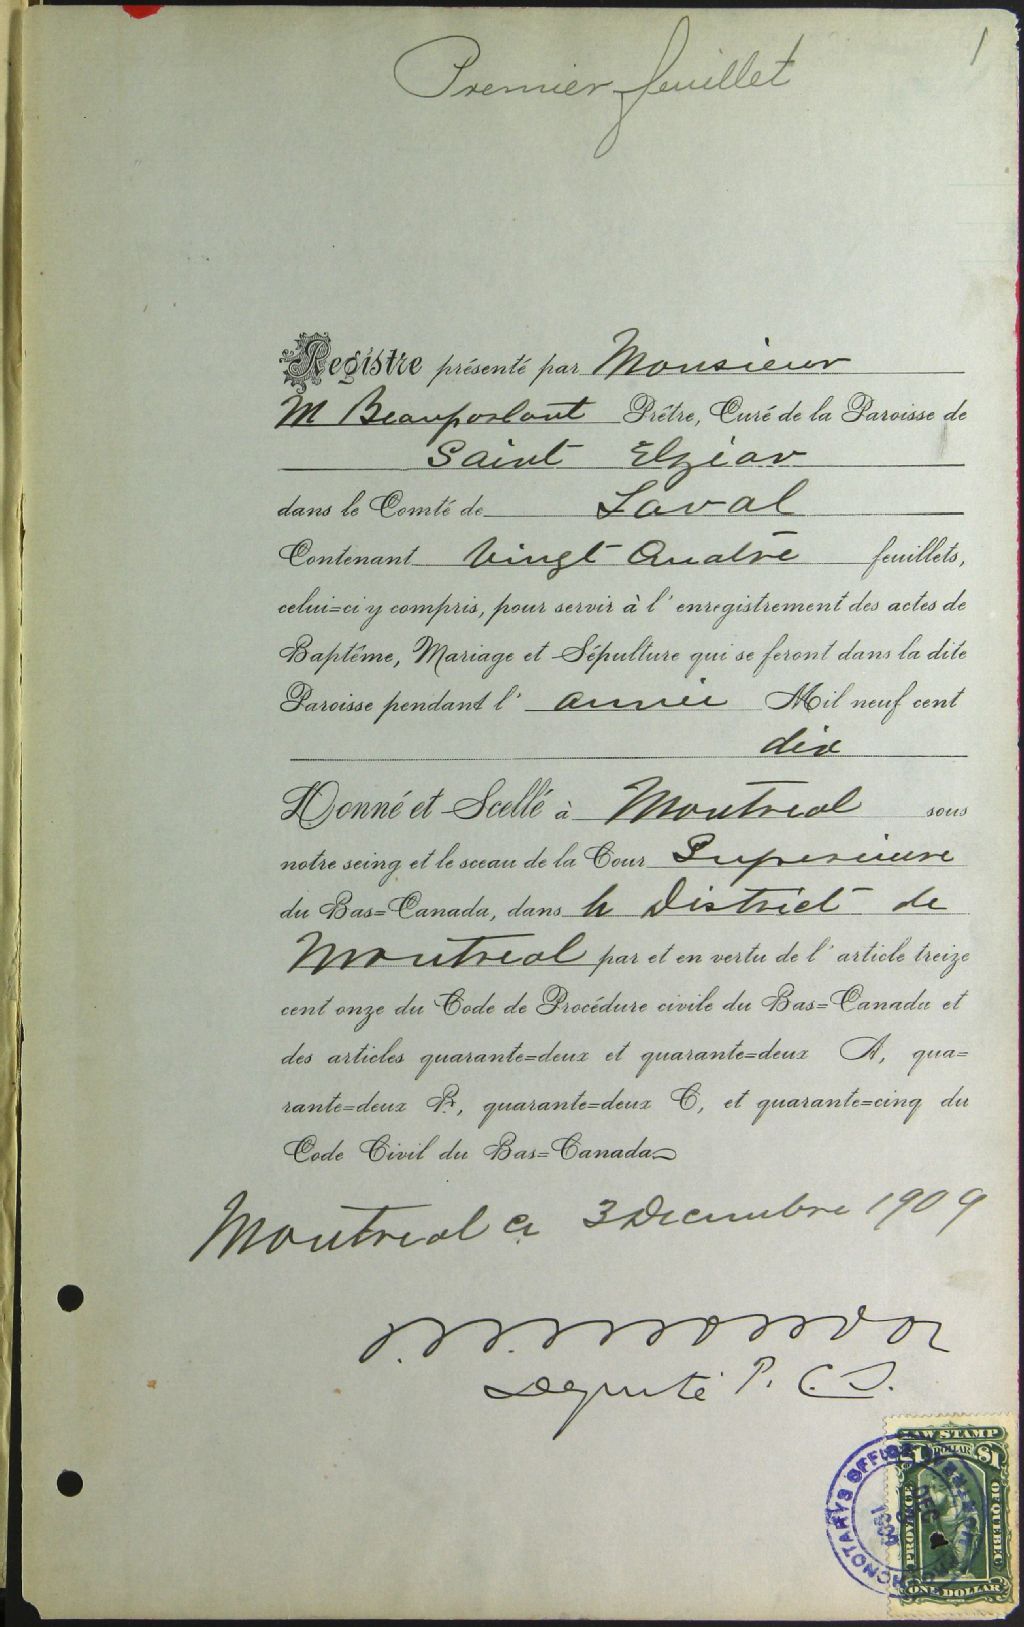 1
Premier feuillet
Registre présenté par Monsieur
M Beauparlant Prêtre, Curé de la Paroisse de
Saint Elzéar
dans le Comté de Laval
Contenant Vingt Quatre feuillets,
celui=ci y compris, pour servir à l'enregistrement des actes de
Baptême, Mariage et Sépulture qui se feront dans la dite
Paroisse pendant l' année Mil neuf cent
dix
Donné et Scellé à Montreal sous
notre seing et le sceau de la Cour Superieure
du Bas=Canada, dans le District de
Montreal par et en vertu de l'article treize
cent onze du Code de Procédure civile du Bas=Canada et
des articles quarante=deux et quarante=deux A, qua=
rante=deux B, quarante=deux C, et quarante=cinq du
Code Civil du Bas=Canada
Montreal ce 3 Decembre 1909
Deputé P. C. S.
LAW STAMP
$1 DOLLAR $1
PROVINCE OF QUEBEC
ONE DOLLAR
PROTHONOTARY'S OFFICE
DEC
1909